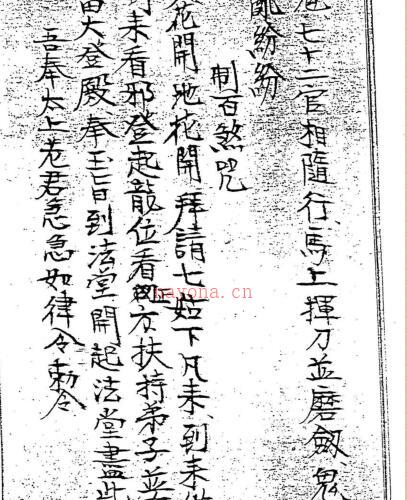 七十二官相隨行、馬上揮刀並磨劍、鬼
亂紛紛
制百煞咒
花開地花開拜請七姑下凡来、到来
到来看邪登起龍位看四方扶持弟子並
大登殿奉玉旨到法堂開起法堂盡
吾奉太上老君急急如律令勅令
nayona.cn